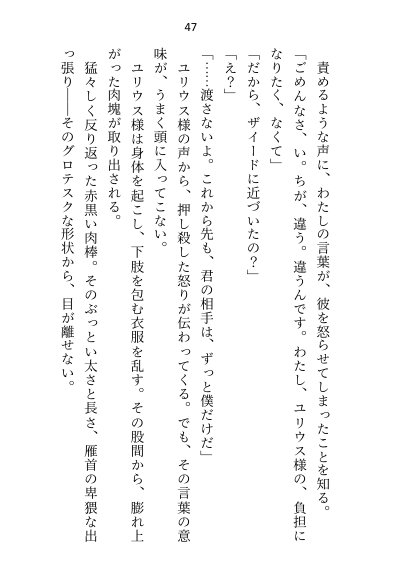 47
責めるような声に、わたしの言葉が、彼を怒らせてしまったことを知る。
「ごめんなさ、い。ちが、違う。違うんです。わたし、ユリウス様の、負担に
なりたく、なくて」
「だから、ザイードに近づいたの？」
「え？」
「……渡さないよ。これから先も、君の相手は、ずっと僕だけだ」
ユリウス様の声から、押し殺した怒りが伝わってくる。でも、その言葉の意
味が、うまく頭に入ってこない。
ユリウス様は身体を起こし、下肢を包む衣服を乱す。その股間から、膨れ上
がった肉塊が取り出される。
猛々しく反り返った赤黒い肉棒。そのぶっとい太さと長さ、雁首の卑猥な出
っ張り――そのグロテスクな形状から、目が離せない。